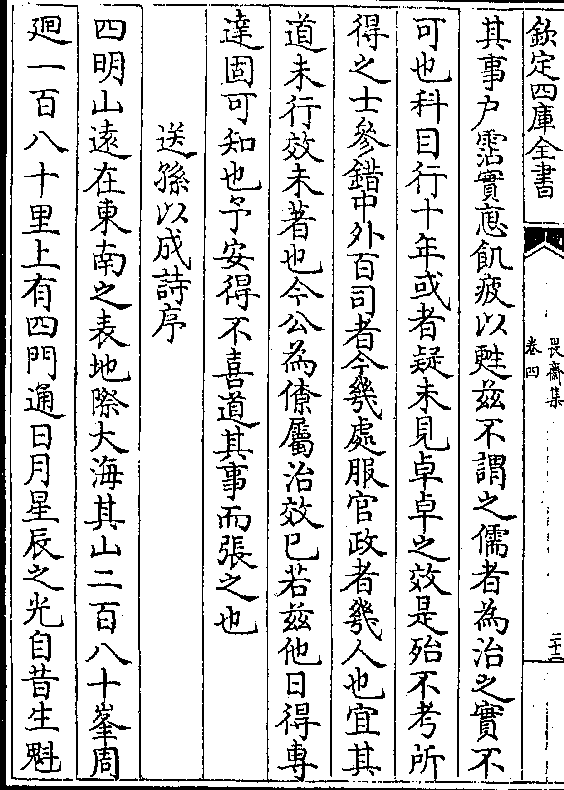 欽定四庫全書
畏齋集
卷四
其事户霑實惠飢疲以甦兹不謂之儒者為治之實不
可也科目行十年或者疑未見卓卓之效是殆不考所
得之士參錯中外百司者今幾處服官政者幾人也宜其
道未行效未著也今公為僚屬治效已若兹他日得專
達固可知也予安得不喜道其事而張之也
送孫以成詩序
四明山遠在東南之表地際大海其山二百八十峯周
廻一百八十里上有四門通日月星辰之光自昔生魁